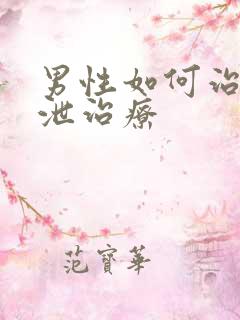 男性如何治
泄治療
范寶華